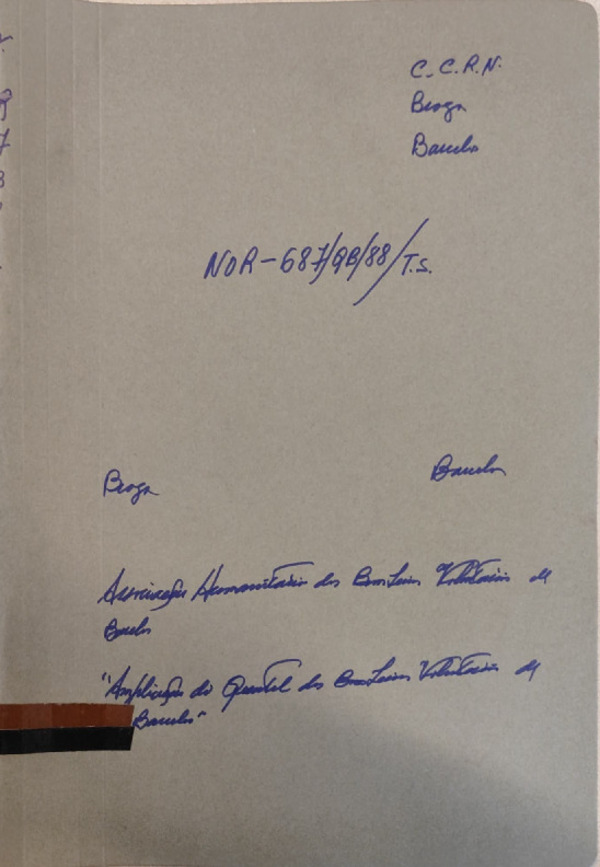 C.C.R.N.
Braga
Barcelos
NOR-687/QB/88/T.S.
Braga
Barcelos
Associação Humanitária dos Bombeiros Voluntários de
Barcelos
"Ampliação do Quartel dos Bombeiros Voluntários de
Barcelos"